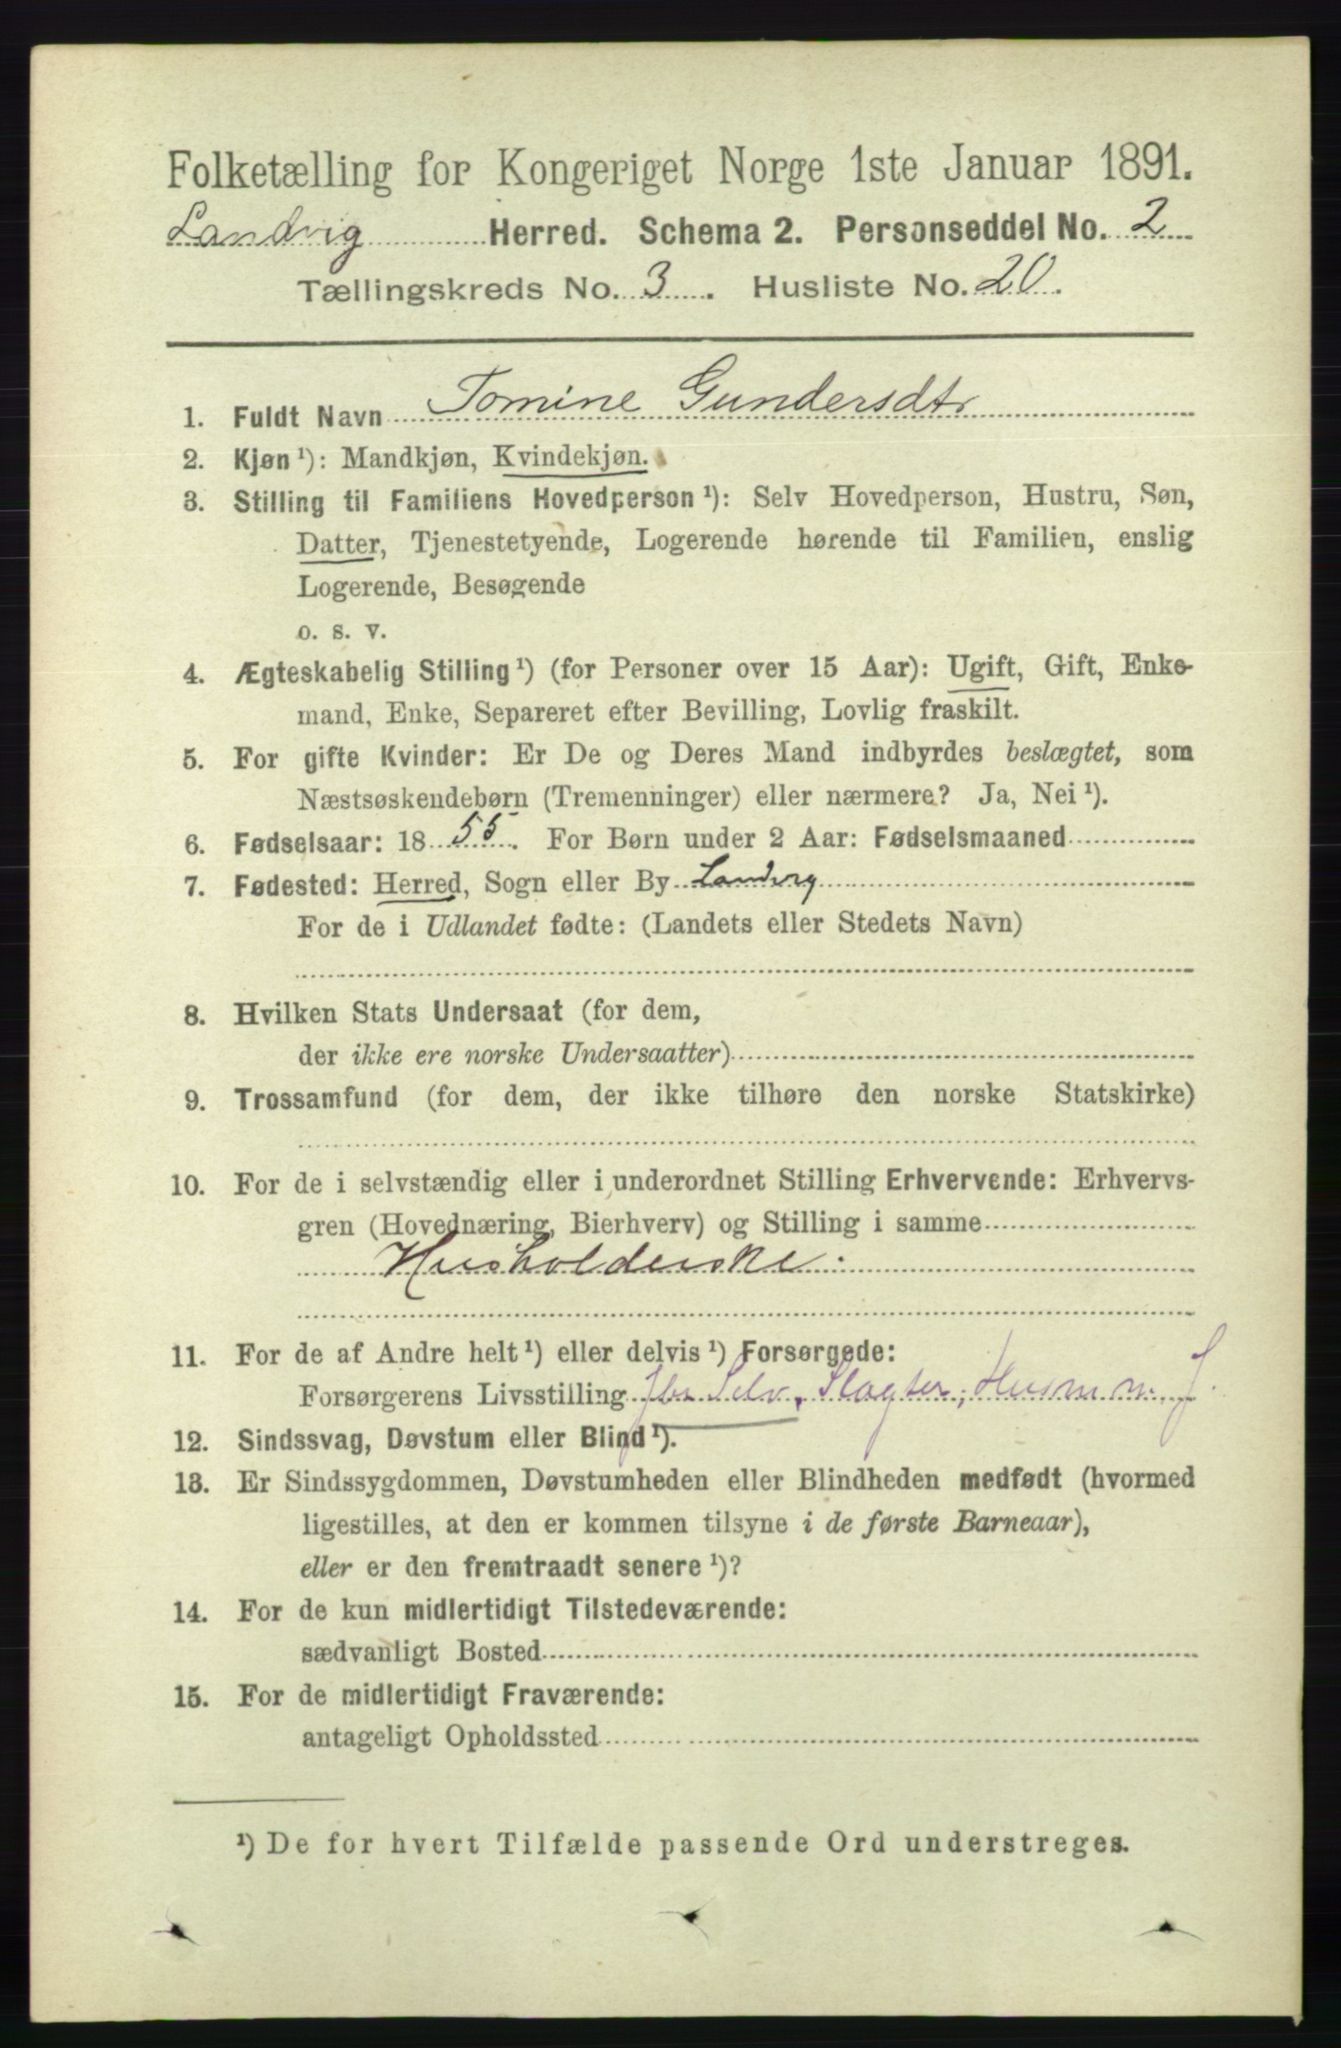 Folketælling for Kongeriget Norge 1ste Januar 1891.
Landvig Herred. Schema 2. Personseddel No. 2
Tællingskreds No. 3. Husliste No. 20.
1. Fuldt Navn Tomine Gundersdtr
2. Kjøn ¹): Mandkjøn, Kvindekjøn.
3. Stilling til Familiens Hovedperson ¹): Selv Hovedperson, Hustru, Søn,
Datter, Tjenestetyende, Logerende hørende til Familien, enslig
Logerende, Besøgende
o. s. v.
4. Ægteskabelig Stilling ¹) (for Personer over 15 Aar): Ugift, Gift, Enke-
mand, Enke, Separeret efter Bevilling, Lovlig fraskilt.
5. For gifte Kvinder: Er De og Deres Mand indbyrdes beslægtet, som
Næstsøskendebørn (Tremenninger) eller nærmere? Ja, Nei ¹).
6. Fødselsaar: 18 55. For Børn under 2 Aar: Fødselsmaaned
7. Fødested: Herred, Sogn eller By Landvig
For de i Udlandet fødte: (Landets eller Stedets Navn)
8. Hvilken Stats Undersaat (for dem,
der ikke ere norske Undersaatter)
9. Trossamfund (for dem, der ikke tilhøre den norske Statskirke)
10. For de i selvstændig eller i underordnet Stilling Erhvervende: Erhvervs-
gren (Hovednæring, Bierhverv) og Stilling i samme
Husholderske.
11. For de af Andre helt ¹) eller delvis ¹) Forsørgede:
Forsørgerens Livsstilling Selv, Slagter, Husm m. J.
12. Sindssvag, Døvstum eller Blind ¹).
13. Er Sindssygdommen, Døvstumheden eller Blindheden medfødt (hvormed
ligestilles, at den er kommen tilsyne i de første Barneaar),
eller er den fremtraadt senere ¹)?
14. For de kun midlertidigt Tilstedeværende:
sædvanligt Bosted
15. For de midlertidigt Fraværende:
antageligt Opholdssted
¹) De for hvert Tilfælde passende Ord understreges.